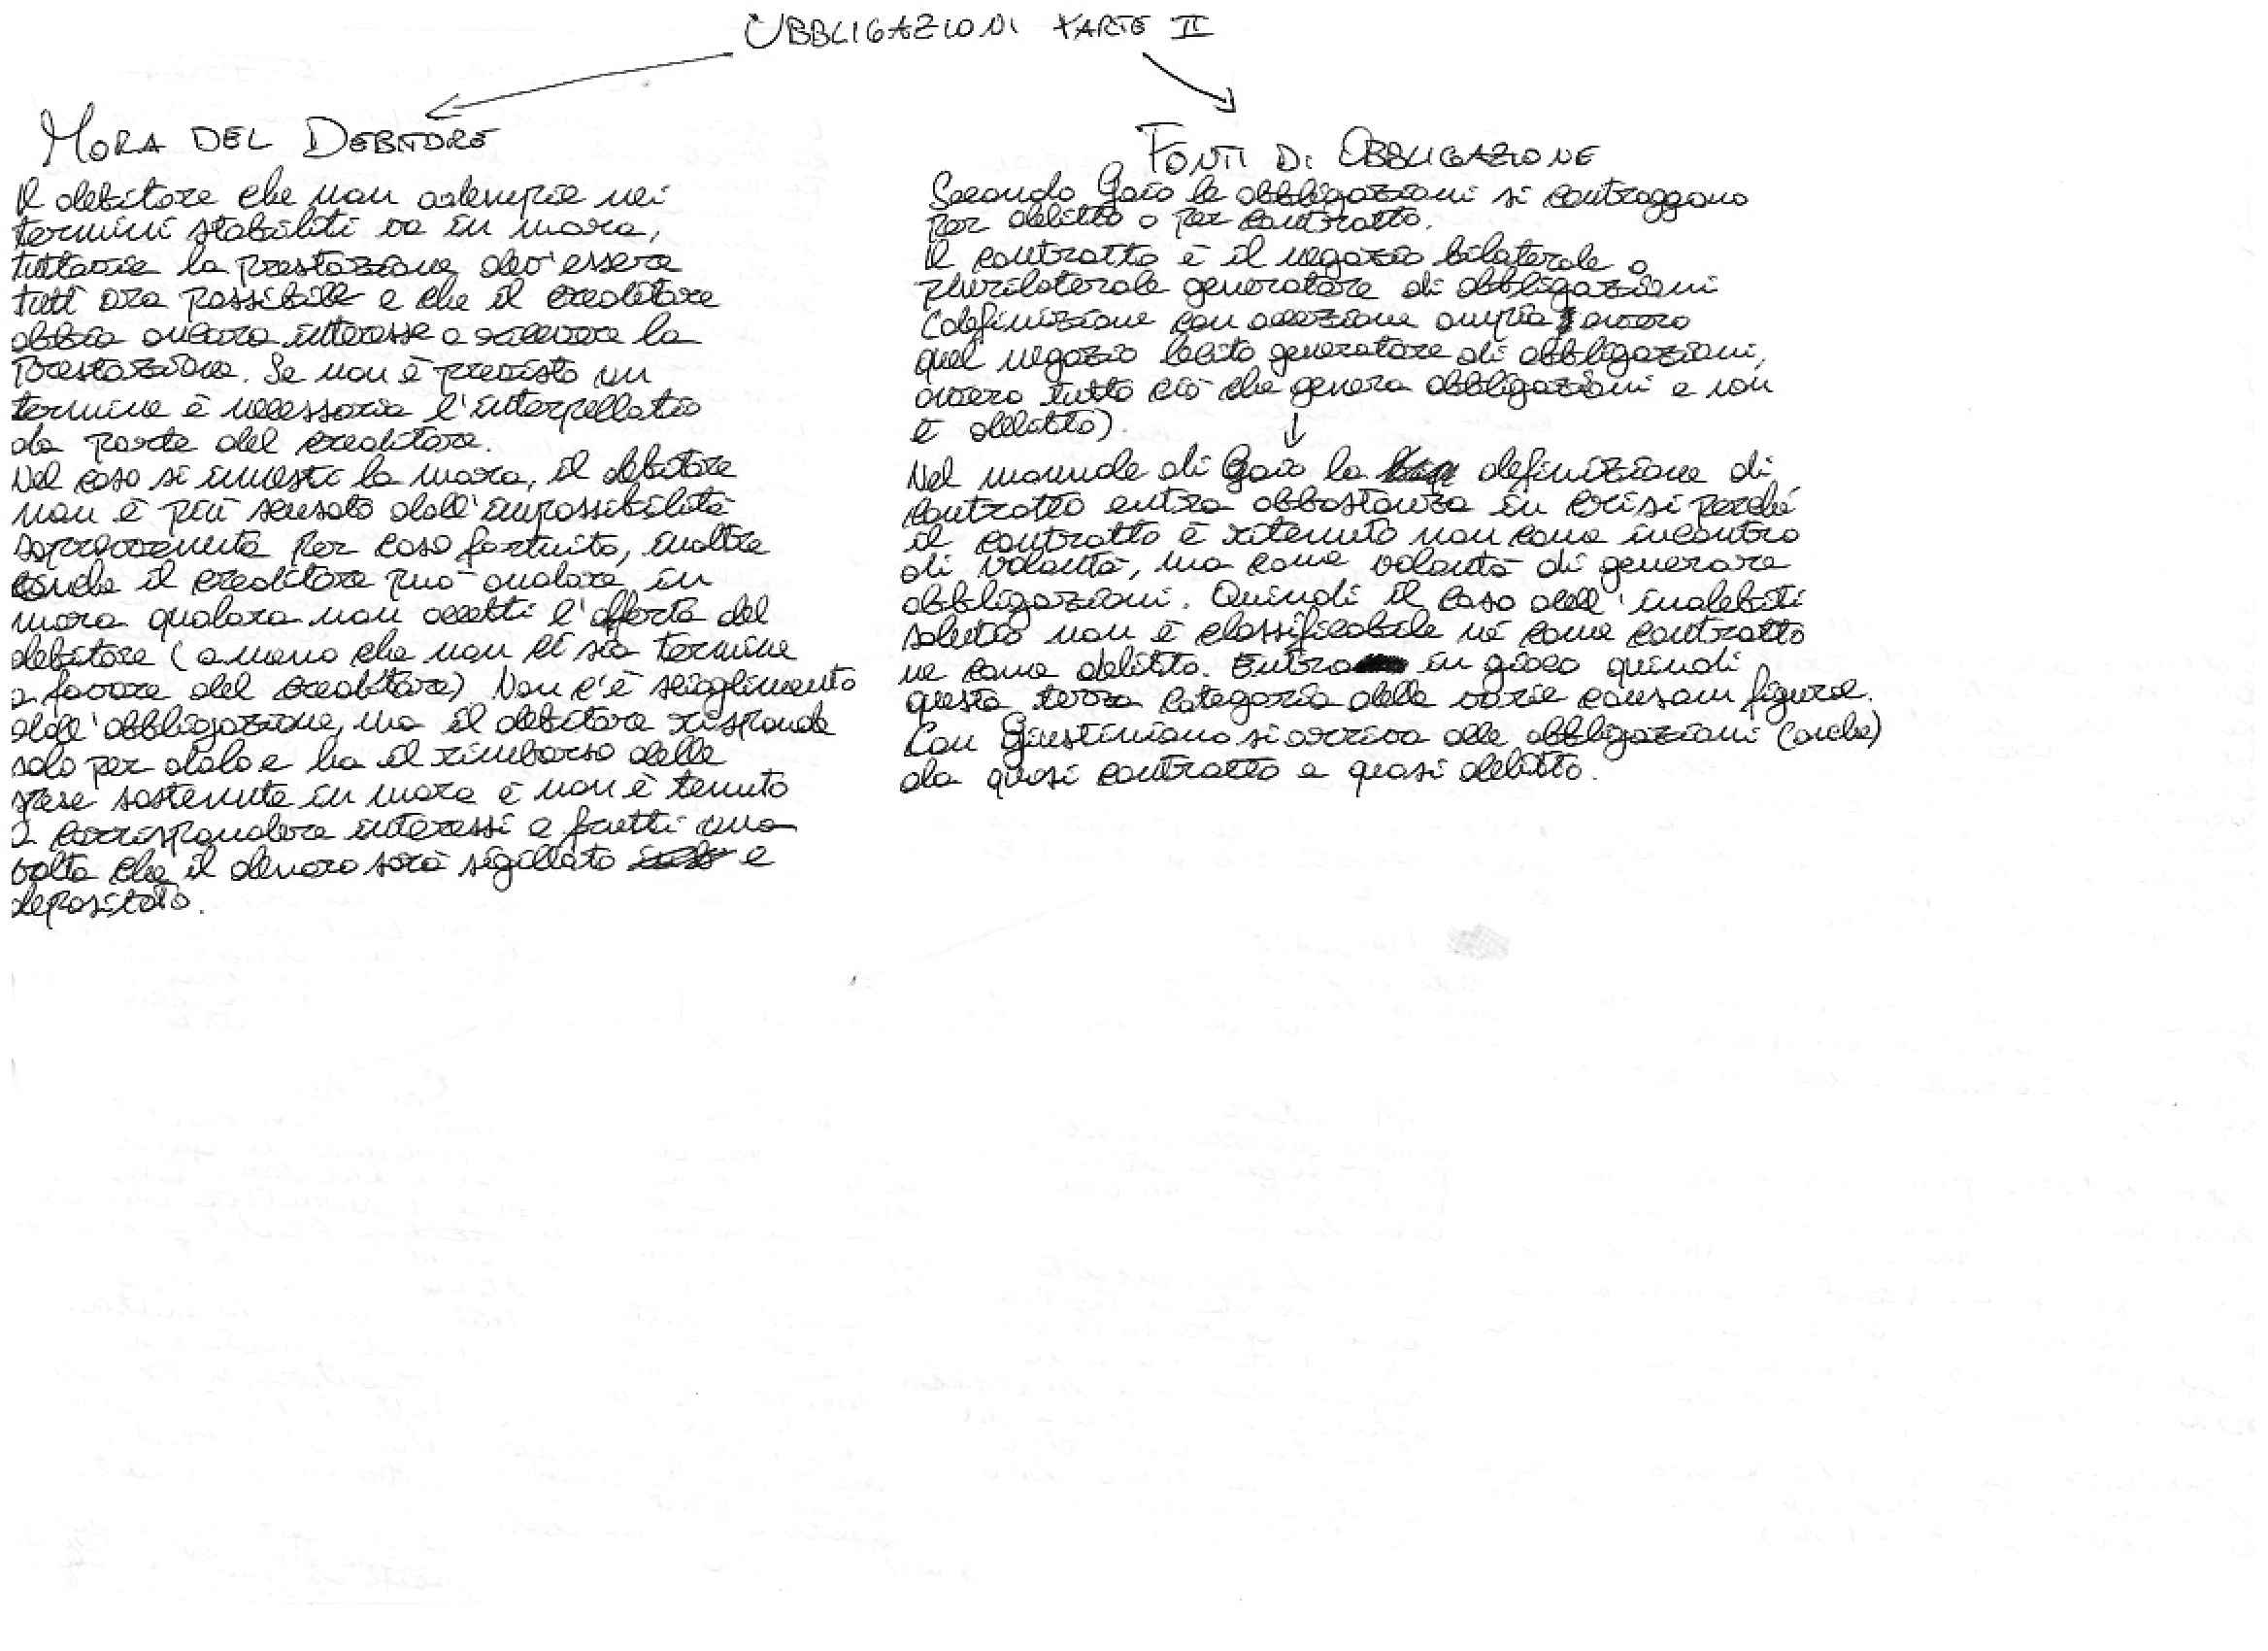 OBBLIGAZIONI PARTE II
MORA DEL DEBITORE
Il debitore che non adempie nei
termini stabiliti va in mora,
tuttavia la prestazione dev'essere
tutt'ora possibile e che il creditore
abbia ancora interesse a ricevere la
prestazione. Se non è previsto un
termine è necessaria l'interpellatio
da parte del creditore.
Nel caso si innesti la mora, il debitore
non è più scusato dall'impossibilità
sopravvenuta per caso fortuito, inoltre
anche il creditore può andare in
mora qualora non accetti l'offerta del
debitore (a meno che non ci sia termine
a favore del creditore) Non c'è scioglimento
dall'obbligazione, ma il debitore risponde
solo per dolo e ha il rimborso delle
spese sostenute in mora e non è tenuto
a corrispondere interessi e frutti una
volta che il denaro sarà sigillato e
depositato.
FONTI DI OBBLIGAZIONE
Secondo Gaio le obbligazioni si contraggono
per delitto o per contratto.
Il contratto è il negozio bilaterale o
plurilaterale generatore di obbligazioni
(definizione con accezione ampia, ovvero
quel negozio lecito generatore di obbligazioni,
ovvero tutto ciò che genera obbligazioni e non
è delitto).
Nel manuale di Gaio la definizione di
contratto entra abbastanza in crisi perché
il contratto è ritenuto non come incontro
di volontà, ma come volontà di generare
obbligazioni. Quindi il caso dell'indebiti
solutio non è classificabile né come contratto
ne come delitto. Entra in gioco quindi
questa terza categoria delle varie causam figurae.
Con Giustiniano si arriva alle obbligazioni (anche)
da quasi contratto e quasi delitto.